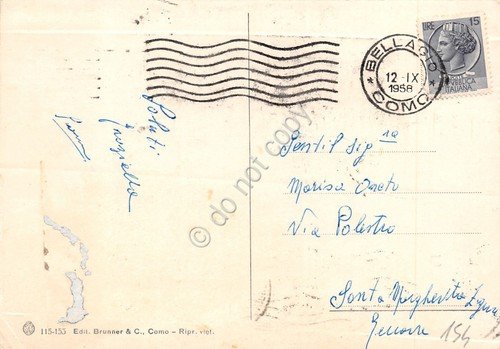 LIRE 15
ITALIANA
* BELLAGIO *
12 - IX
1958
COMO
Saluti
Graziella
do not copy
Gentil Sig.na
Marisa Oneto
Via Palestro
Santa Margherita Ligure
Genova
154
115-155 Edit. Brunner & C., Como - Ripr. viet.